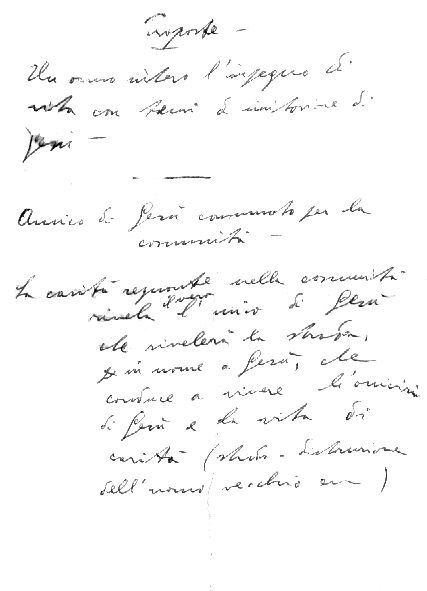 Proposte -
Un anno intero l'impegno di
vita con temi di imitazione di
Gesù -
Amico di Gesù consumato per la
comunità -
La carità regnante nella comunità
rivela il vero
l'unico di Gesù
che rivelerà la strada,
in nome a Gesù, che
conduce a vivere l'amicizia
di Gesù e la vita di
carità (strada - distruzione
dell'uomo vecchio)